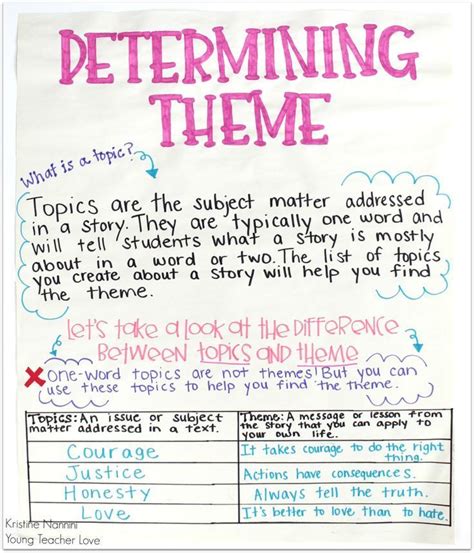 DETERMINING
THEME
What is a topic?
Topics are the subject matter addressed
in a story. They are typically one word and
will tell students what a story is mostly
about in a word or two. The list of topics
you create about a story will help you find
the theme.
Let's take a look at the difference
between topics and theme
One-word topics are not themes! But you can
use these topics to help you find the theme.
Topics: An issue or subject
matter addressed in a text.
Theme: A message or lesson from
the story that you can apply to
your own life.
Courage
It takes courage to do the right
thing.
Justice
Actions have consequences.
Honesty
Always tell the truth.
Love
It's better to love than to hate.
Kristine Nannini
Young Teacher Love